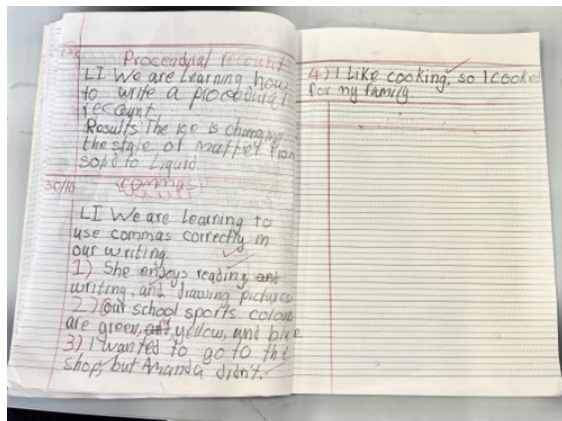 Procedural recount
LI We are learning how
to write a procedural
reccount
Results The ice is changing
the state of matter from
solid to Liquid
30/10 commas
LI We are Learning to
use commas correctly in
our writing.
1) She enjoys reading, and
writing, and drawing pictures
2) Our school sports colours
are green, and yellow, and blue
3) I wanted to go to the
shop, but Amanda didn't.
4) I Like cooking, so I cooked
for my family